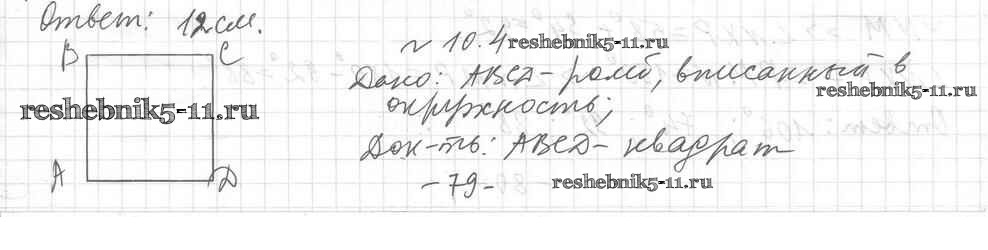 Ответ: 12 см.
№ 10.4 reshebnik5-11.ru
B C
Дано: ABCD - ромб, вписанный в
reshebnik5-11.ru
reshebnik5-11.ru
окружность;
Док-ть: ABCD - квадрат
A D
-79- reshebnik5-11.ru